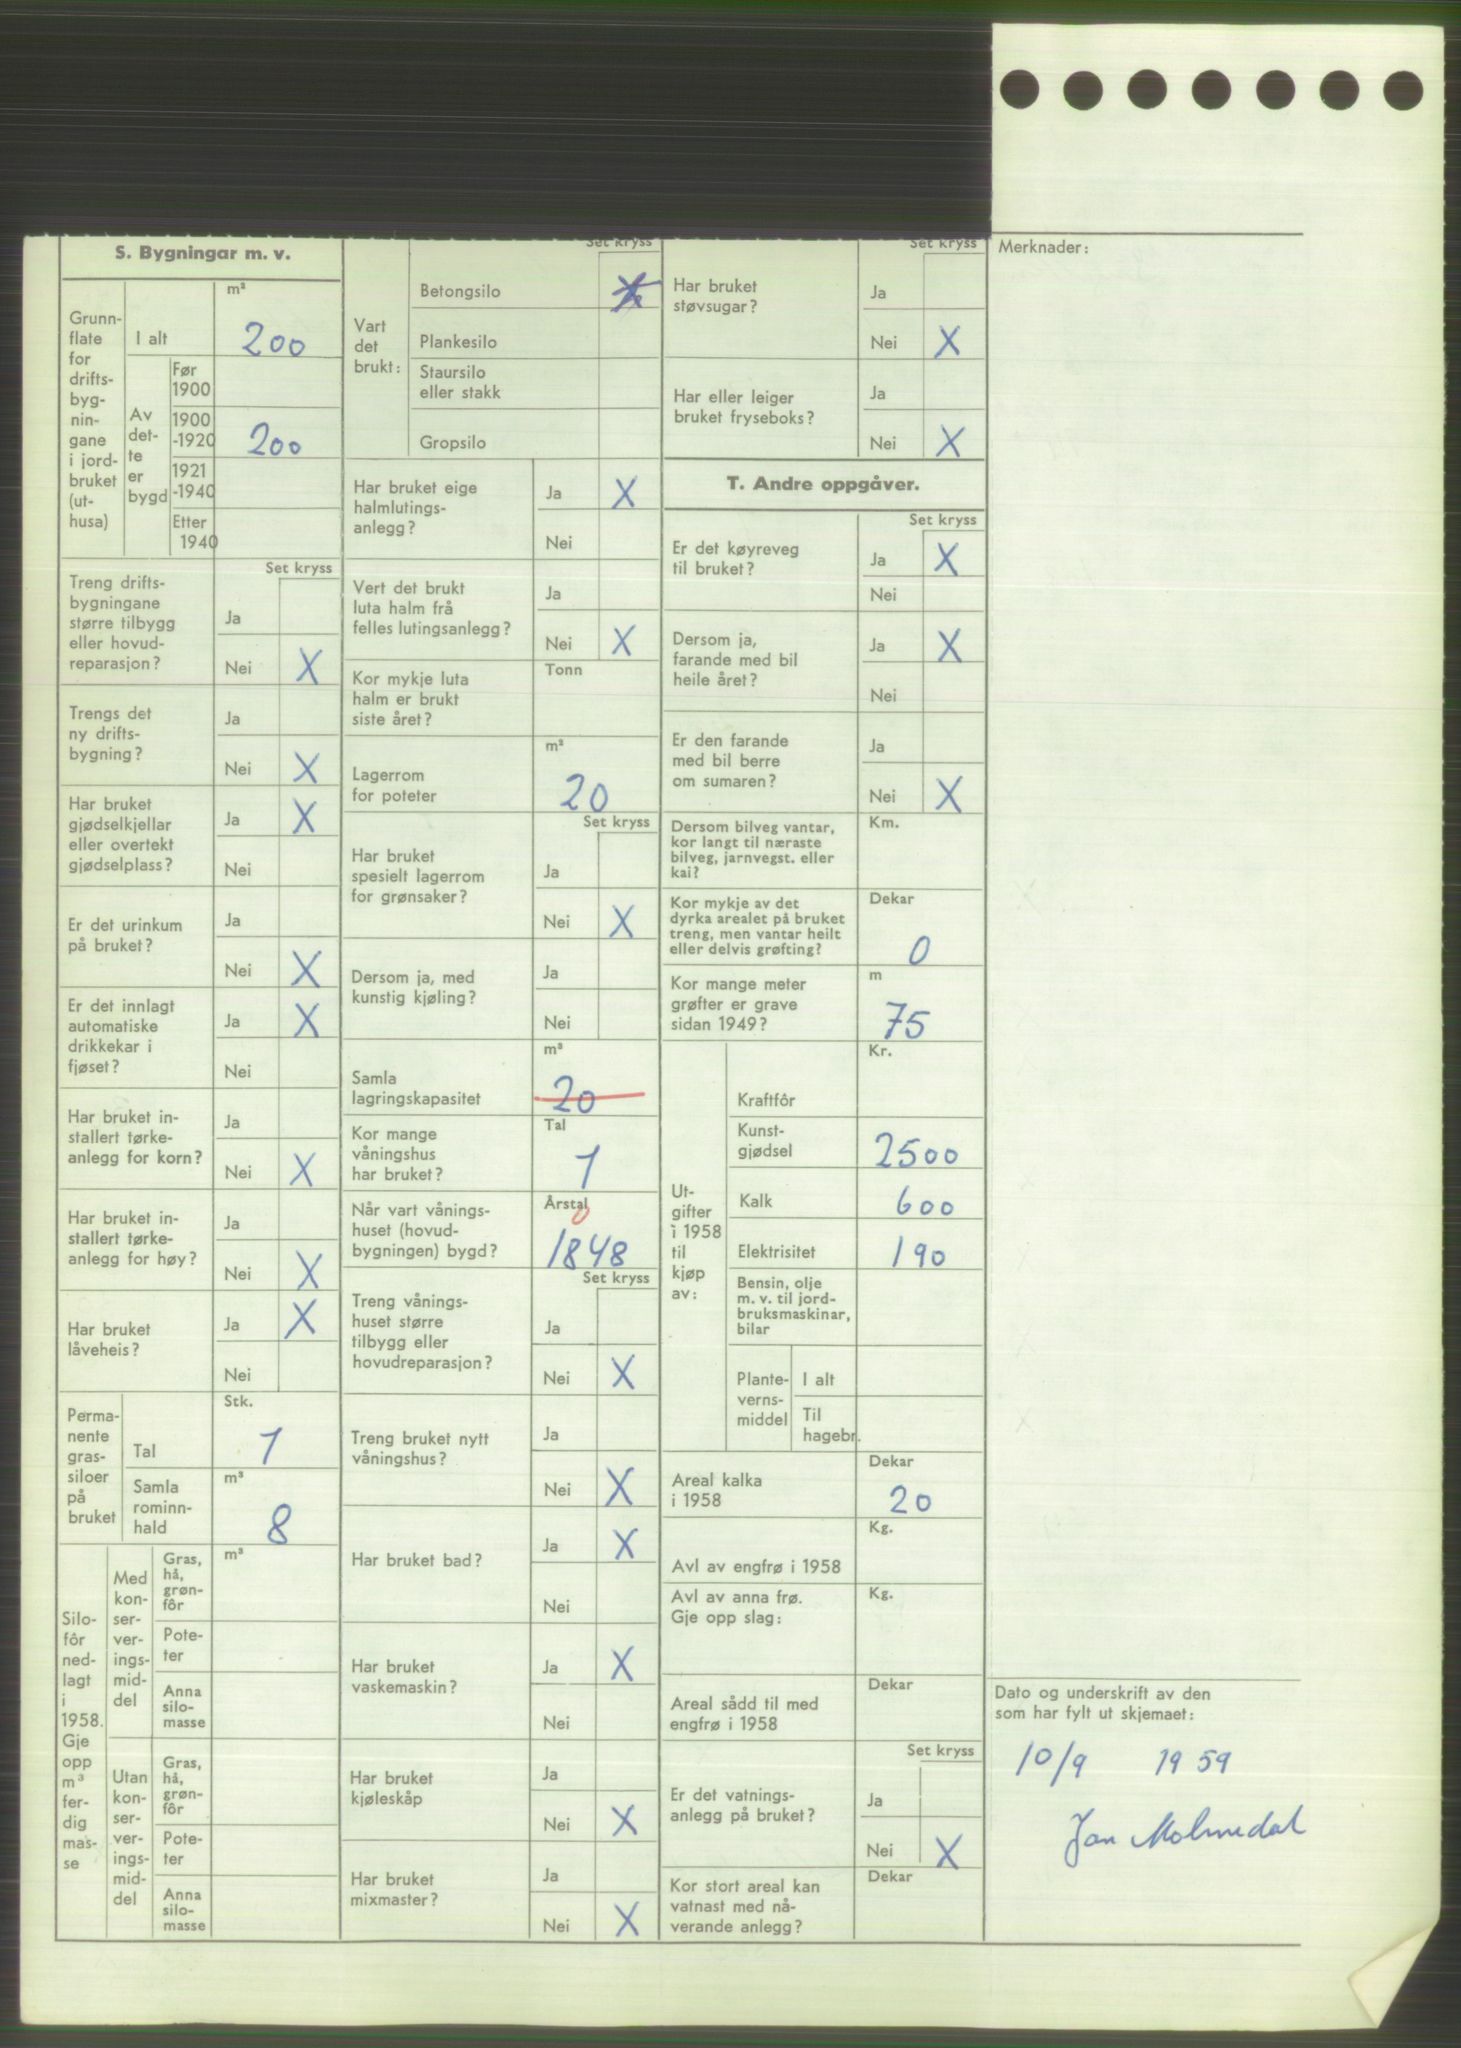 S. Bygningar m. v.
Grunn-
flate
for
drifts-
byg-
nin-
gane
i jord-
bruket
(ut-
husa)
m²
I alt
200
Av
det-
te
er
bygd
Før
1900
1900
-1920
200
1921
-1940
Etter
1940
Set kryss
Treng drifts-
bygningane
større tilbygg
eller hovud-
reparasjon?
Ja
Nei X
Trengs det
ny drifts-
bygning?
Ja
Nei X
Har bruket
gjødselkjellar
eller overtekt
gjødselplass?
Ja X
Nei
Er det urinkum
på bruket?
Ja
Nei X
Er det innlagt
automatiske
drikkekar i
fjøset?
Ja X
Nei
Har bruket in-
stallert tørke-
anlegg for korn?
Ja
Nei X
Har bruket in-
stallert tørke-
anlegg for høy?
Ja
Nei X
Har bruket
låveheis?
Ja X
Nei
Perma-
nente
gras-
siloer
på
bruket
Stk.
Tal
1
Samla
rominn-
hald
m³
8
Silo-
fôr
ned-
lagt
i
1958.
Gje
opp
m³
fer-
dig
mas-
se
Med
kon-
ser-
ver-
ings-
mid-
del
Gras,
hå,
grøn-
fôr
m³
Pote-
ter
Anna
silo-
masse
Utan
kon-
ser-
ver-
ings-
mid-
del
Gras,
hå,
grøn-
fôr
Pote-
ter
Anna
silo-
masse
Set kryss
Vart
det
brukt:
Betongsilo X
Plankesilo
Staursilo
eller stakk
Gropsilo
Har bruket eige
halmlutings-
anlegg?
Ja X
Nei
Vert det brukt
luta halm frå
felles lutingsanlegg?
Ja
Nei X
Kor mykje luta
halm er brukt
siste året?
Tonn
Lagerrom
for poteter
m³
20
Set kryss
Har bruket
spesielt lagerrom
for grønsaker?
Ja
Nei X
Dersom ja, med
kunstig kjøling?
Ja
Nei
Samla
lagringskapasitet
m³
20
Kor mange
våningshus
har bruket?
Tal
1
Når vart vånings-
huset (hovud-
bygningen) bygd?
Årstal
0
1848
Set kryss
Treng vånings-
huset større
tilbygg eller
hovudreparasjon?
Ja
Nei X
Treng bruket nytt
våningshus?
Ja
Nei X
Har bruket bad?
Ja X
Nei
Har bruket
vaskemaskin?
Ja X
Nei
Har bruket
kjøleskåp
Ja
Nei X
Har bruket
mixmaster?
Ja
Nei X
Set kryss
Har bruket
støvsugar?
Ja
Nei X
Har eller leiger
bruket fryseboks?
Ja
Nei X
T. Andre oppgåver.
Set kryss
Er det køyreveg
til bruket?
Ja X
Nei
Dersom ja,
farande med bil
heile året?
Ja X
Nei
Er den farande
med bil berre
om sumaren?
Ja
Nei X
Dersom bilveg vantar,
kor langt til næraste
bilveg, jarnvegst. eller
kai?
Km.
Kor mykje av det
dyrka arealet på bruket
treng, men vantar heilt
eller delvis grøfting?
Dekar
0
Kor mange meter
grøfter er grave
sidan 1949?
m
75
Ut-
gifter
i 1958
til
kjøp
av:
Kr.
Kraftfôr
Kunst-
gjødsel
2500
Kalk
600
Elektrisitet
190
Bensin, olje
m. v. til jord-
bruksmaskinar,
bilar
Plante-
verns-
middel
I alt
Til
hagebr.
Areal kalka
i 1958
Dekar
20
Avl av engfrø i 1958
Kg.
Avl av anna frø.
Gje opp slag:
Kg.
Areal sådd til med
engfrø i 1958
Dekar
Set kryss
Er det vatnings-
anlegg på bruket?
Ja
Nei X
Kor stort areal kan
vatnast med nå-
verande anlegg?
Dekar
Merknader:
Dato og underskrift av den
som har fylt ut skjemaet:
10/9 1959
Jan